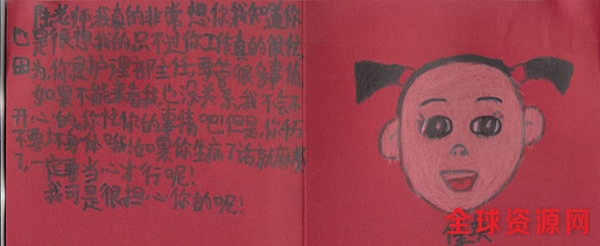 陆老师我真的非常想你我知道你
也是很想我的只不过你工作真的很忙
因为你是护理部主任,要管很多事情
如果不能来看我也没关系,我不会不
开心的,你忙你的事情吧,但是,你千万
不要坏身体哦!如果你生病了话就麻烦
了,一定要当心才行呢!
我可是很担心你的呢!
全球资源网